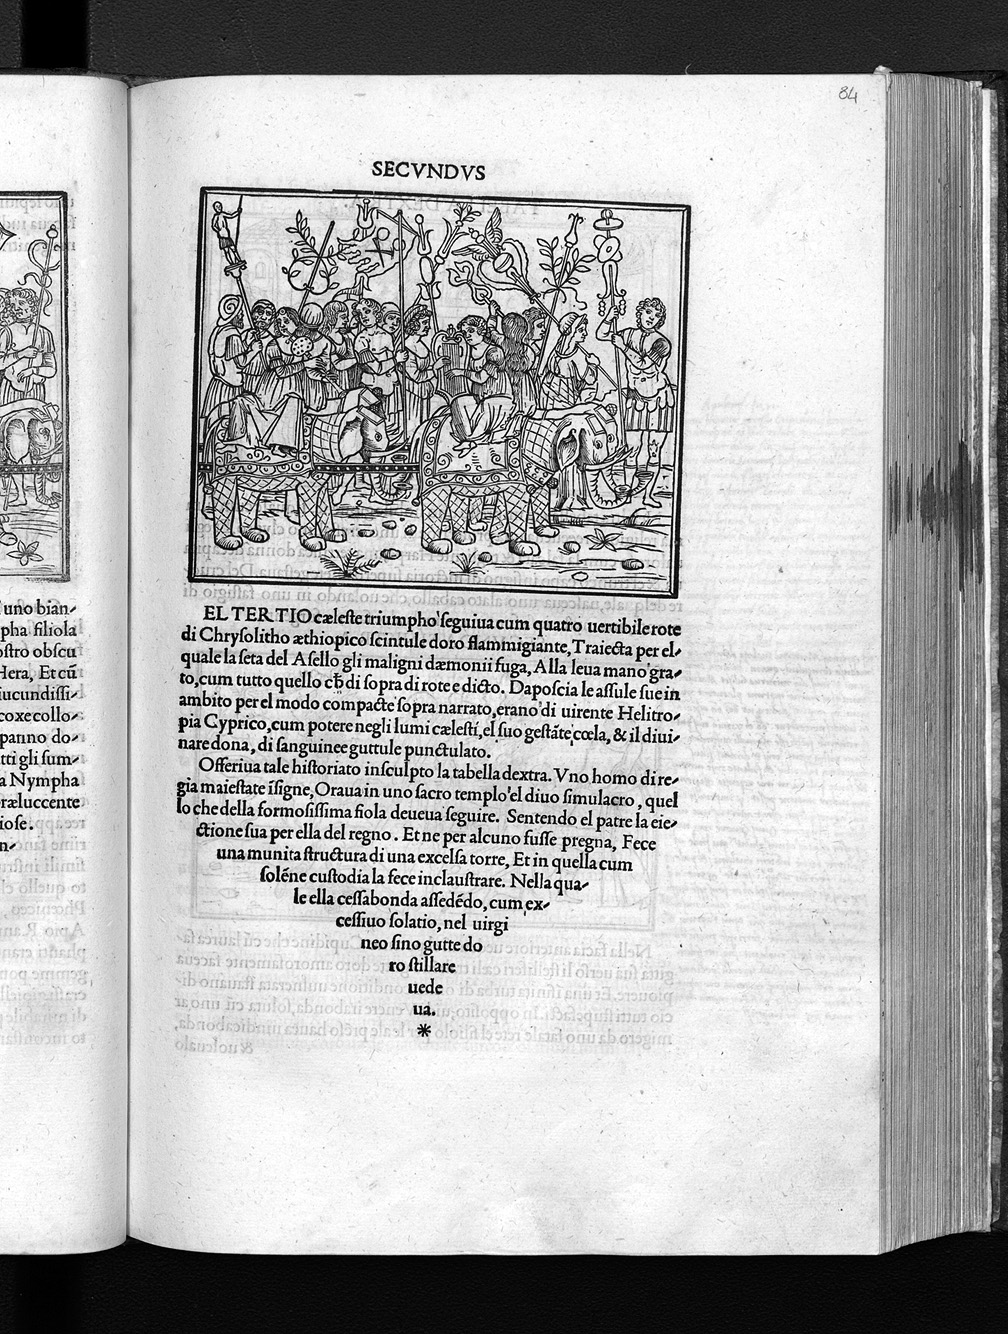 84
SECVNDVS
EL TERTIO cæleste triumpho seguiua cum quatro uertibile rote
di Chrysolitho æthiopico scintule doro flammigiante, Traiecta per el-
quale la seta del Asello gli maligni dæmonii fuga, Alla leua mano gra-
to, cum tutto quello cħ di sopra di rote e dicto. Daposcia le assule sue in
ambito per el modo compacte sopra narrato, erano di uirente Helitro-
pia Cyprico, cum potere negli lumi cælesti, el suo gestāte cœla, & il diui-
nare dona, di sanguinee guttule punctulato.
Offeriua tale historiato insculpto la tabella dextra. Vno homo di re-
gia maiestate īsigne, Oraua in uno sacro templo el diuo simulacro, quel
lo che della formosissima fiola deueua seguire. Sentendo el patre la eie-
ctione sua per ella del regno. Et ne per alcuno fusse pregna, Fece
una munita structura di una excelsa torre, Et in quella cum
solēne custodia la fece inclaustrare. Nella qua-
le ella cessabonda assedēdo, cum ex-
cessiuo solatio, nel uirgi
neo sino gutte do
ro stillare
uede
ua.
*
uno bian-
pha filiola
ostro obscu
Hera, Et cū
iucundissi-
coxe collo-
panno do-
tti gli sum-
a Nympha
ræluccente
iose.
n-